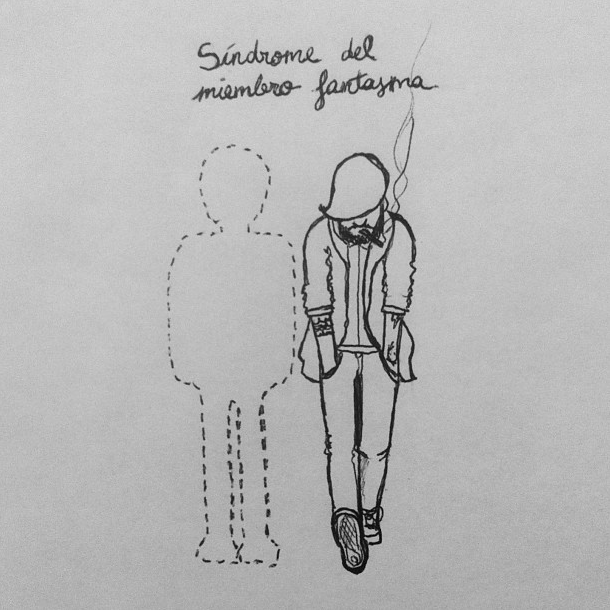 Síndrome del
miembro fantasma